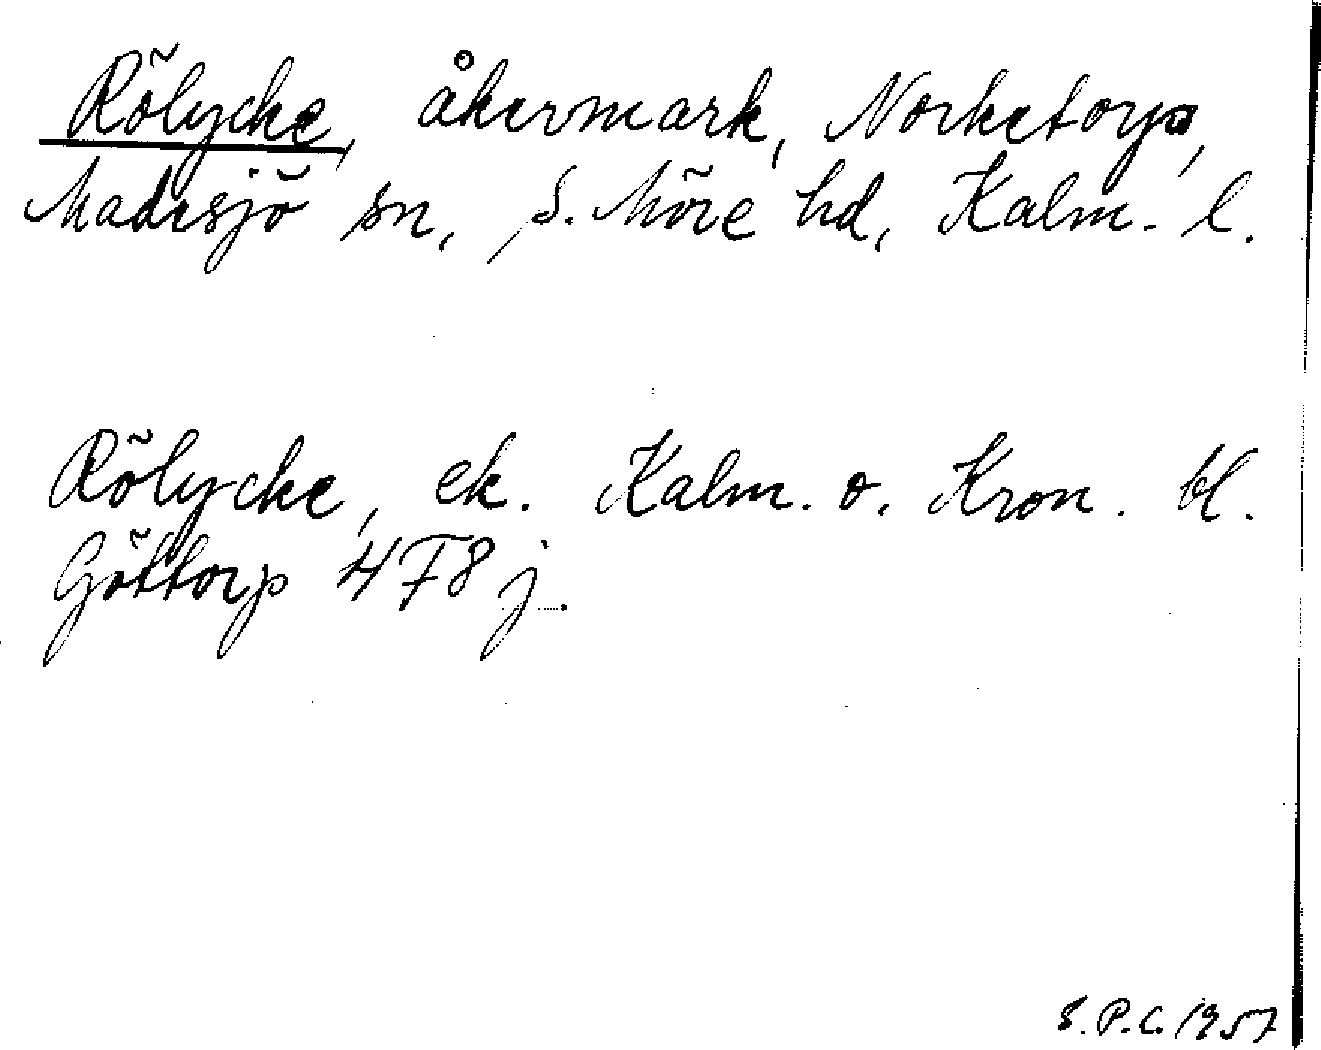 Rölycke, åkermark, Norketorp,
Madesjö sn, S. Möre hd, Kalm. l.
Rölycke, ek. Kalm. o. Kron. bl.
Göttorp 4F8 j.
S.P.C. 1957